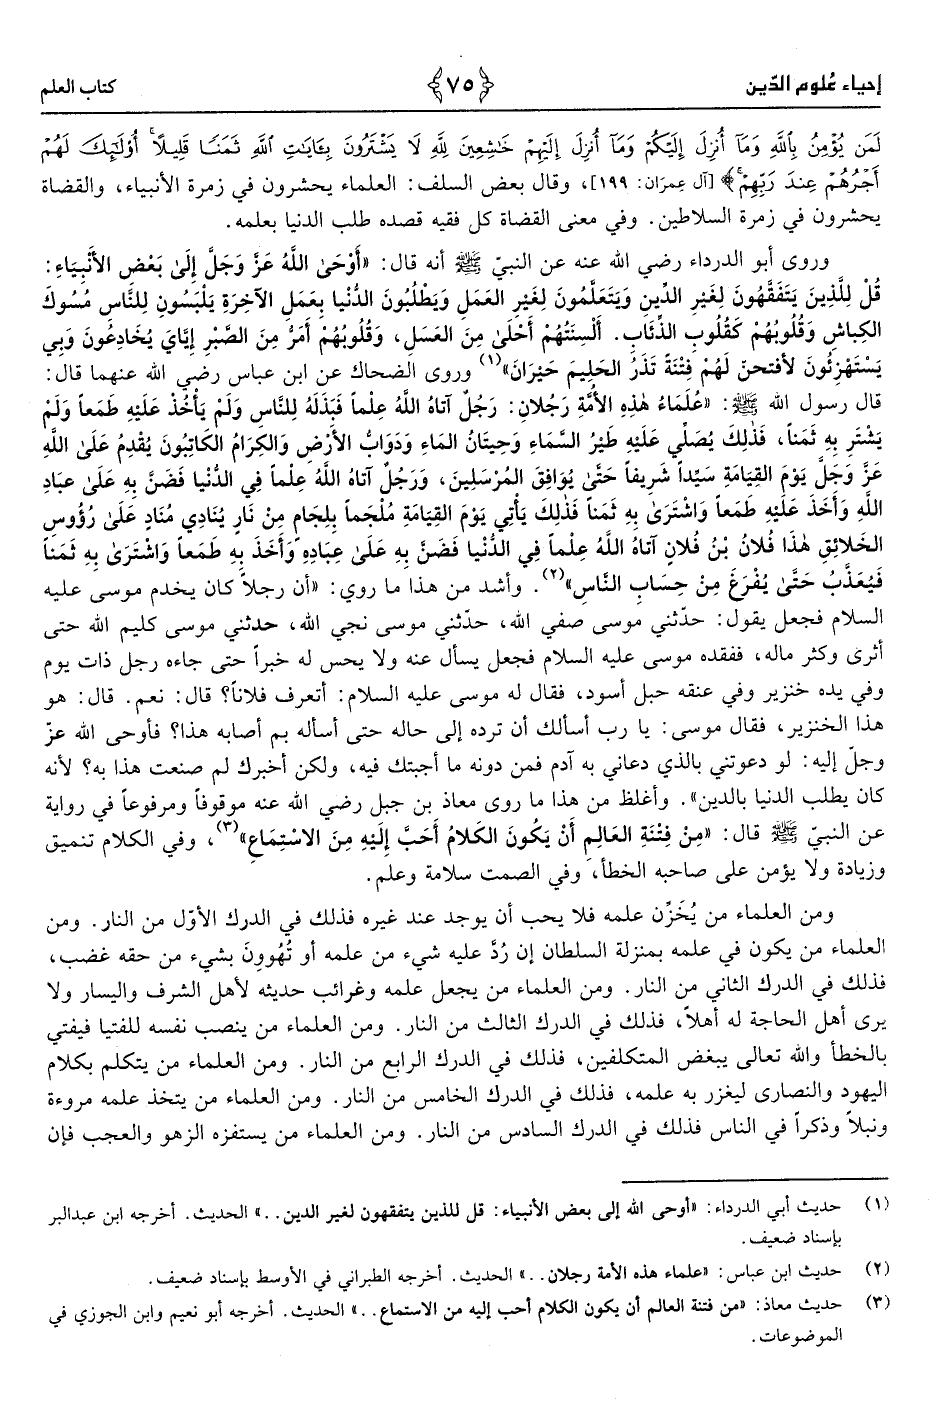 إحياء عُلوم الدّين ﴿٧٥﴾ كتاب العلم
لَمَن يُؤْمِنُ بِاللَّهِ وَمَآ أُنزِلَ إِلَيْكُمْ وَمَآ أُنزِلَ إِلَيْهِمْ خَٰشِعِينَ لِلَّهِ لَا يَشْتَرُونَ بِـَٔايَٰتِ اللَّهِ ثَمَنًا قَلِيلًا ۗ أُوْلَٰٓئِكَ لَهُمْ
أَجْرُهُمْ عِندَ رَبِّهِمْ ۗ﴾ [آل عِمرَان: ١٩٩]، وقال بعض السلف: العلماء يحشرون في زمرة الأنبياء، والقضاة
يحشرون في زمرة السلاطين. وفي معنى القضاة كل فقيه قصده طلب الدنيا بعلمه.
وروى أبو الدرداء رضي الله عنه عن النبيّ ﷺ أنه قال: «أَوْحَىٰ اللَّهُ عَزَّ وَجَلَّ إِلَىٰ بَعْضِ الأَنْبِيَاءِ:
قُلْ لِلَّذِينَ يَتَفَقَّهُونَ لِغَيْرِ الدِّينِ وَيَتَعَلَّمُونَ لِغَيْرِ العَمَلِ وَيَطْلُبُونَ الدُّنْيَا بِعَمَلِ الآخِرَةِ يَلْبَسُونِ لِلنَّاسِ مُسُوكَ
الكِبَاشِ وَقُلُوبُهُمْ كَقُلُوبِ الذِّئَابِ. أَلْسِنَتُهُمْ أَحْلَىٰ مِنَ العَسَلِ، وَقُلُوبُهُمْ أَمَرُّ مِنَ الصَّبْرِ إِيَّايَ يُخَادِعُونَ وَبِي
يَسْتَهْزِئُونَ لأَفتحنّ لَهُمْ فِتْنَةً تَذَرُ الحَلِيمَ حَيْرَانَ»(١) وروى الضحاك عن ابن عباس رضي الله عنهما قال:
قال رسول الله ﷺ: «عُلَمَاءُ هٰذِهِ الأُمَّةِ رَجُلانِ: رَجُلٌ آتاهُ اللَّهُ عِلْماً فَبَذَلَهُ لِلنَّاسِ وَلَمْ يَأْخُذْ عَلَيْهِ طَمَعاً وَلَمْ
يَشْتَرِ بِهِ ثَمَناً، فَذَلِكَ يُصَلِّي عَلَيْهِ طَيْرُ السَّمَاءِ وَحِيتَانُ المَاءِ وَدَوَابُّ الأَرْضِ وَالكِرَامُ الكَاتِبُونَ يُقْدِمُ عَلَىٰ اللَّهِ
عَزَّ وَجَلَّ يَوْمَ القِيَامَةِ سَيِّداً شَرِيفاً حَتَّىٰ يُوَافِقَ المُرْسَلِينَ، وَرَجُلٌ آتاهُ اللَّهُ عِلْماً فِي الدُّنْيَا فَضَنَّ بِهِ عَلَىٰ عِبَادِ
اللَّهِ وَأَخَذَ عَلَيْهِ طَمَعاً وَاشْتَرَىٰ بِهِ ثَمَناً فَذَلِكَ يَأْتِي يَوْمَ القِيَامَةِ مُلْجَماً بِلِجَامٍ مِنْ نَارٍ يُنَادِي مُنَادٍ عَلَىٰ رُؤُوسِ
الخَلائِقِ هٰذَا فُلانُ بْنُ فُلانٍ آتَاهُ اللَّهُ عِلْماً فِي الدُّنْيَا فَضَنَّ بِهِ عَلَىٰ عِبَادِهِ وَأَخَذَ بِهِ طَمَعاً وَاشْتَرَىٰ بِهِ ثَمَناً
فَيُعَذَّبُ حَتَّىٰ يُفْرَغَ مِنْ حِسَابِ النَّاسِ»(٢). وأشد من هذا ما روي: «أن رجلاً كان يخدم موسى عليه
السلام فجعل يقول: حدّثني موسى صفي الله، حدّثني موسى نجي الله، حدثني موسى كليم الله حتى
أثرى وكثر ماله، ففقده موسى عليه السلام فجعل يسأل عنه ولا يحس له خبراً حتى جاءه رجل ذات يوم
وفي يده خنزير وفي عنقه حبل أسود، فقال له موسى عليه السلام: أتعرف فلاناً؟ قال: نعم. قال: هو
هذا الخنزير، فقال موسى: يا رب أسألك أن ترده إلى حاله حتى أسأله بم أصابه هذا؟ فأوحى الله عزّ
وجلّ إليه: لو دعوتني بالذي دعاني به آدم فمن دونه ما أجبتك فيه، ولكن أخبرك لم صنعت هذا به؟ لأنه
كان يطلب الدنيا بالدين». وأغلظ من هذا ما روى معاذ بن جبل رضي الله عنه موقوفاً ومرفوعاً في رواية
عن النبيّ ﷺ قال: «مِنْ فِتْنَةِ العَالِمِ أَنْ يَكُونَ الكَلامُ أَحَبَّ إِلَيْهِ مِنَ الاسْتِمَاعِ»(٣)، وفي الكلام تنميق
وزيادة ولا يؤمن على صاحبه الخطأ، وفي الصمت سلامة وعلم.
ومن العلماء من يُخَزِّن علمه فلا يحب أن يوجد عند غيره فذلك في الدرك الأوّل من النار. ومن
العلماء من يكون في علمه بمنزلة السلطان إن رُدَّ عليه شيء من علمه أو تُهُووِنَ بشيء من حقه غضب،
فذلك في الدرك الثاني من النار. ومن العلماء من يجعل علمه وغرائب حديثه لأهل الشرف واليسار ولا
يرى أهل الحاجة له أهلاً، فذلك في الدرك الثالث من النار. ومن العلماء من ينصب نفسه للفتيا فيفتي
بالخطأ والله تعالى يبغض المتكلفين، فذلك في الدرك الرابع من النار. ومن العلماء من يتكلم بكلام
اليهود والنصارى ليغزر به علمه، فذلك في الدرك الخامس من النار. ومن العلماء من يتخذ علمه مروءة
ونبلاً وذكراً في الناس فذلك في الدرك السادس من النار. ومن العلماء من يستفزه الزهو والعجب فإن
(١) حديث أبي الدرداء: «أوحى الله إلى بعض الأنبياء: قل للذين يتفقهون لغير الدين..» الحديث. أخرجه ابن عبدالبر
بإسناد ضعيف.
(٢) حديث ابن عباس: «علماء هذه الأمة رجلان..» الحديث. أخرجه الطبراني في الأوسط بإسناد ضعيف.
(٣) حديث معاذ: «من فتنة العالم أن يكون الكلام أحب إليه من الاستماع..» الحديث. أخرجه أبو نعيم وابن الجوزي في
الموضوعات.